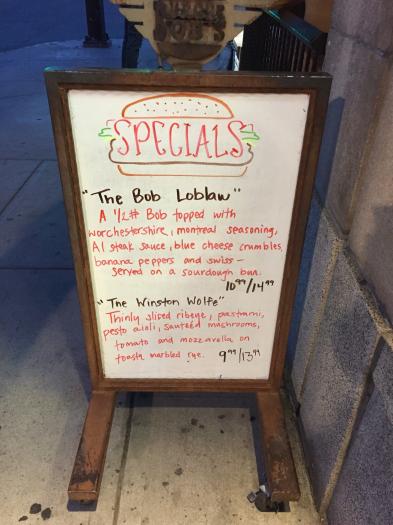 BOB'S
SPECIALS
"The Bob Loblaw"
A 1/2# Bob topped with
worchestershire, montreal seasoning,
A1 steak sauce, blue cheese crumbles,
banana peppers and swiss -
served on a sourdough bun.
10⁹⁹/14⁹⁹
"The Winston Wolfe"
Thinly sliced ribeye, pastrami,
pesto aioli, sautéed mushrooms,
tomato and mozzarella on
toasty marbled rye. 9⁹⁹/13⁹⁹